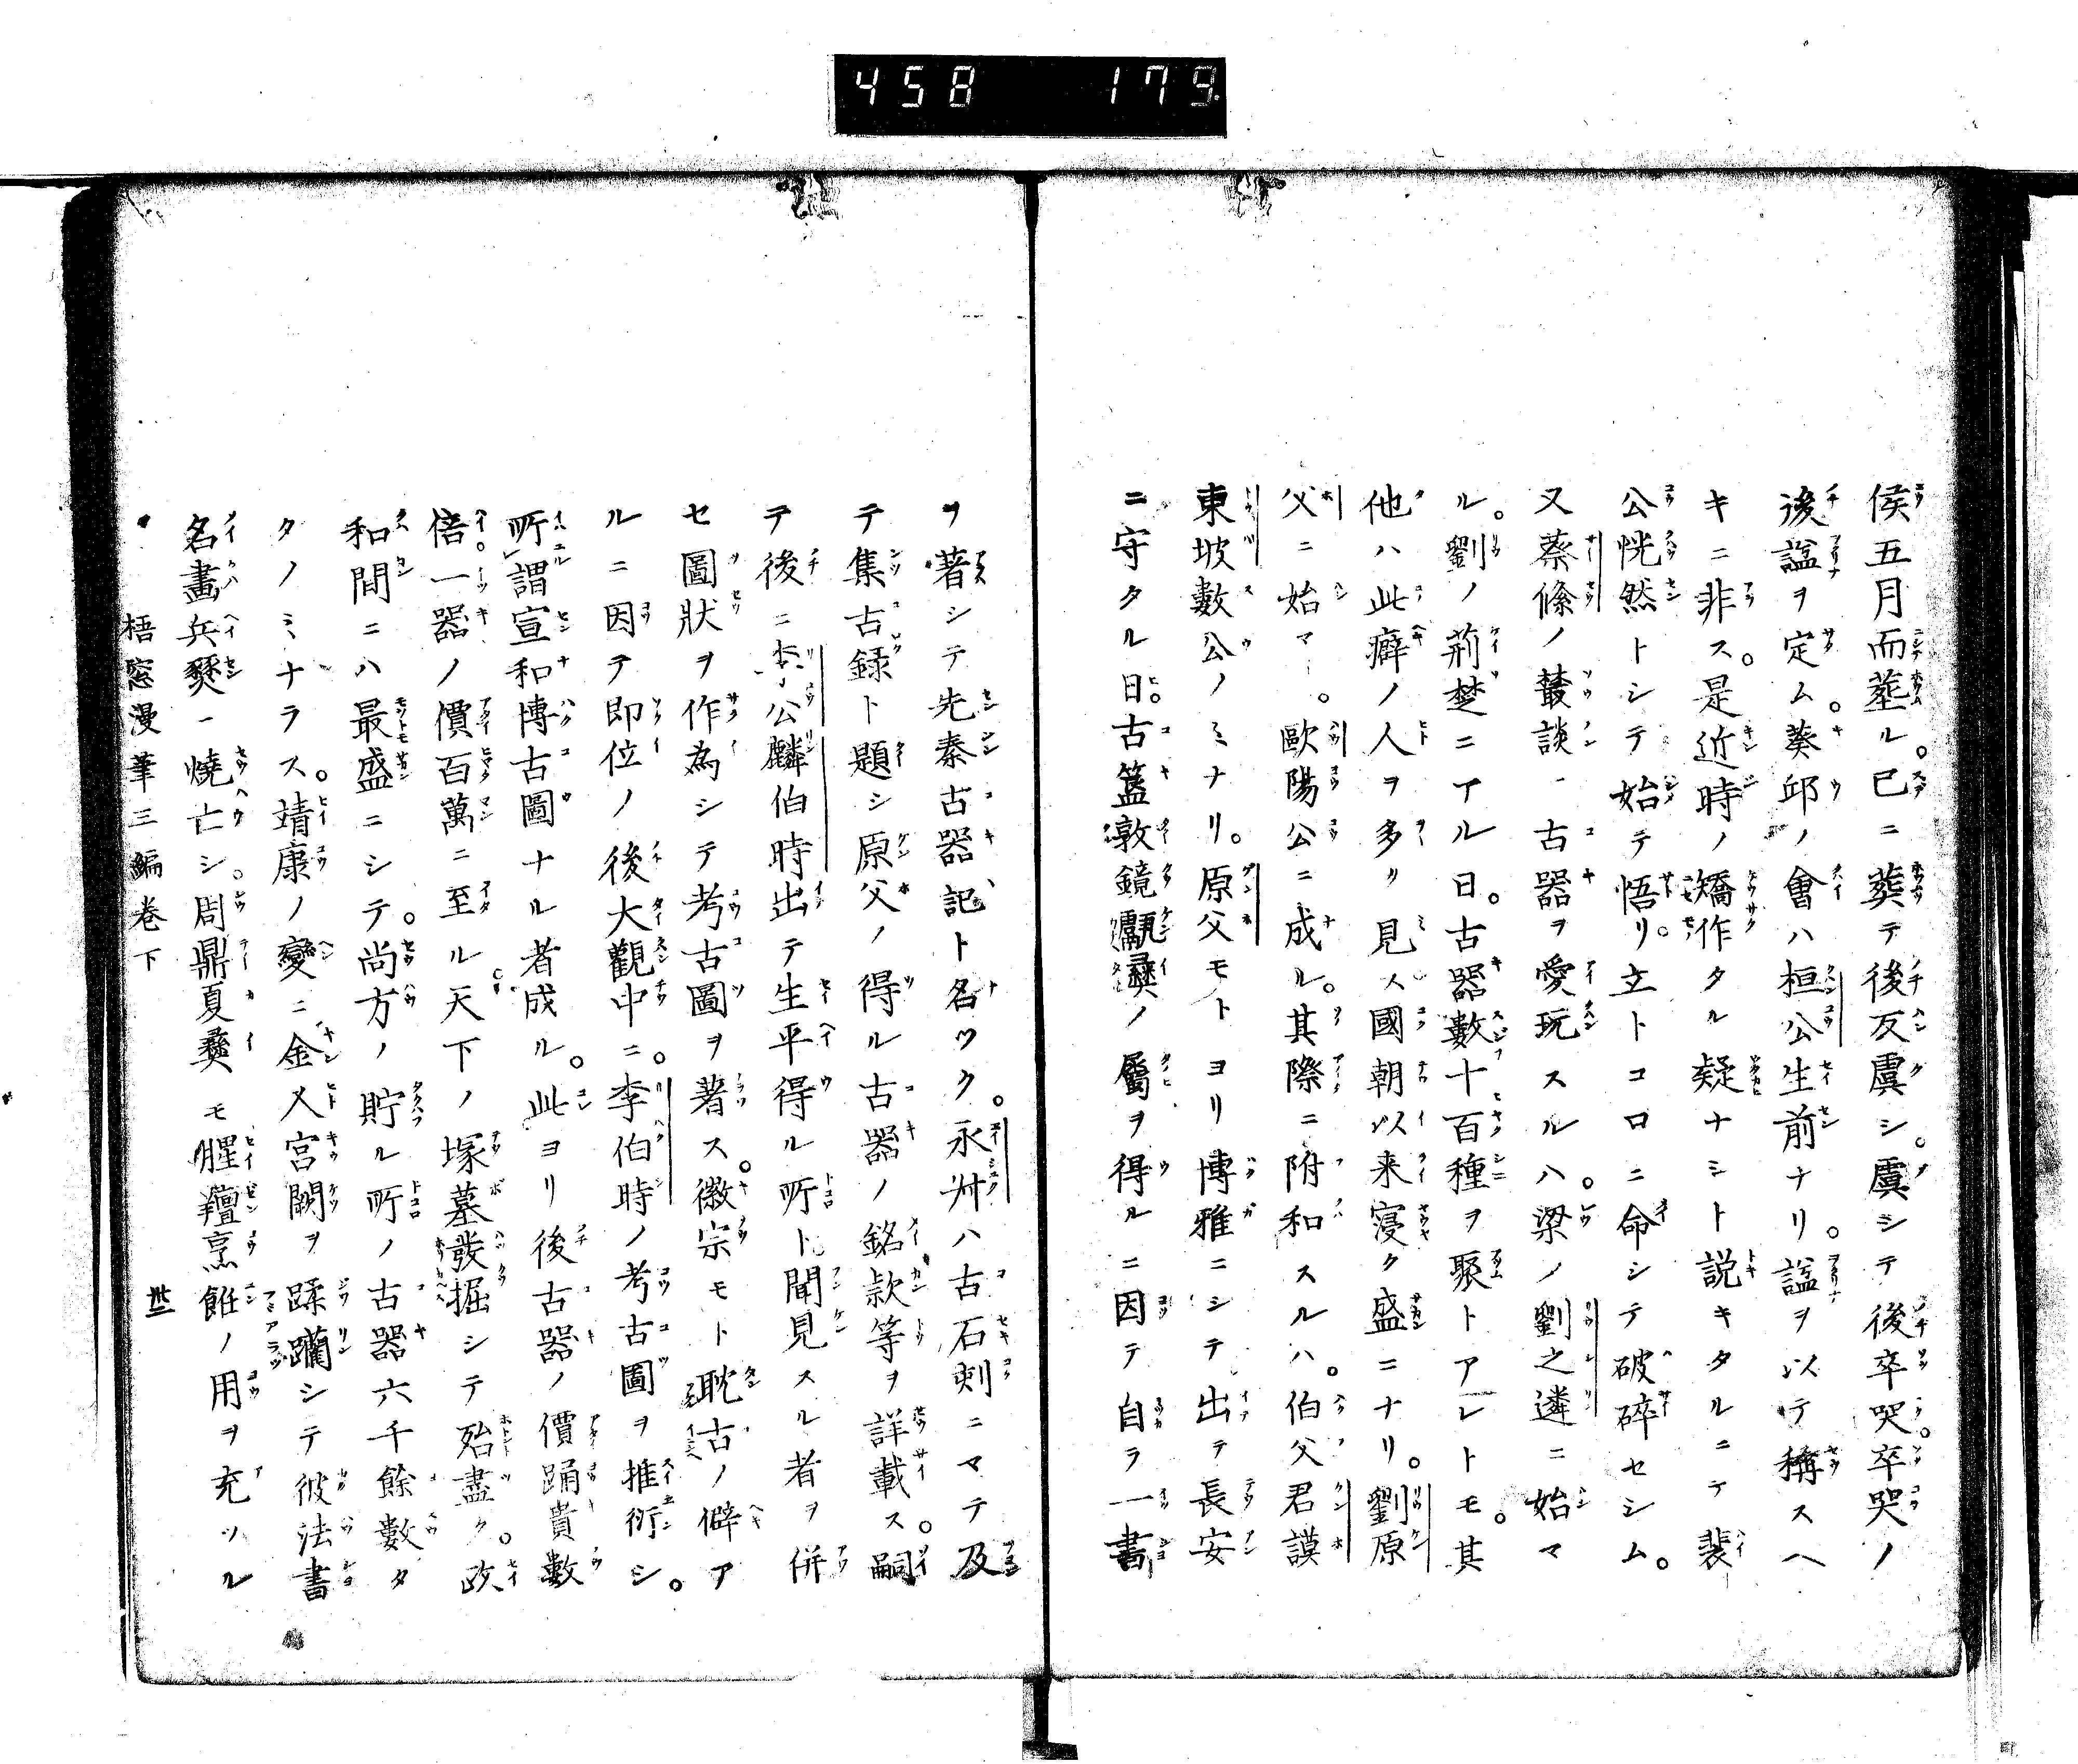 458 179.
侯五月而塟ル。已ニ葬テ後反虞シ。虞シテ後卒哭。卒哭ノ
後諡ヲ定ム。葵邱ノ會ハ桓公生前ナリ。諡ヲ以テ稱スヘ
キニ非ス。是近時ノ矯作タル疑ナシト説キタルニテ裴
公恍然トシテ始テ悟リ。立トコロニ命シテ破碎セシム。
又蔡絛ノ叢談ニ古器ヲ愛玩スルハ。梁ノ劉之遴ニ始マ
ル。劉ノ荊楚ニアル日。古器數十百種ヲ聚トアレトモ。其
他ハ此癖ノ人ヲ多ク見ス國朝以来寖ク盛ニナリ。劉原
父ニ始マ。歐陽公ニ成ル。其際ニ附和スルハ。伯父君謨
東坡數公ノミナリ。原父モトヨリ博雅ニシテ出テ長安
ニ守タル日。古簋敦鏡甗彝ノ屬ヲ得ルニ因テ自ラ一書
ヲ著シテ先秦古器記ト名ツク。永州ハ古石刻ニマテ及
テ集古録ト題シ原父ノ得ル古器ノ銘款等ヲ詳載ス。嗣
テ後ニ李公麟伯時出テ生平得ル所ト聞見スル者ヲ併
セ圖狀ヲ作為シテ考古圖ヲ著ス。徽宗モト耽古ノ僻ア
ルニ因テ即位ノ後大觀中ニ。李伯時ノ考古圖ヲ推衍シ。
所謂宣和博古圖ナル者成ル。此ヨリ後古器ノ價踊貴數
倍。一器ノ價百萬ニ至ル天下ノ塚墓發掘シテ殆盡ク。政
和間ニハ最盛ニシテ。尚方ノ貯ル所ノ古器六千餘數タ
タノミナラス。靖康ノ變ニ金人宮闕ヲ蹂躪シテ彼法書
名畫兵燹ニ燒亡シ。周鼎夏彝モ腥羶烹飪ノ用ヲ充ツル
梧窓漫筆三編卷下 卅三